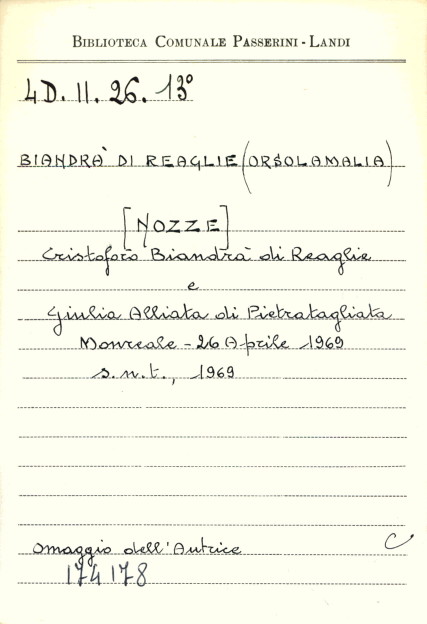 BIBLIOTECA COMUNALE PASSERINI - LANDI
4D. II. 26. 13°
BIANDRA' DI REAGLIE (ORSOLAMALIA)
[NOZZE]
Cristoforo Biandrà di Reaglie
e
Giulia Alliata di Pietratagliata
Monreale - 26 Aprile 1969
s.n.t., 1969
omaggio dell'Autrice C
174178